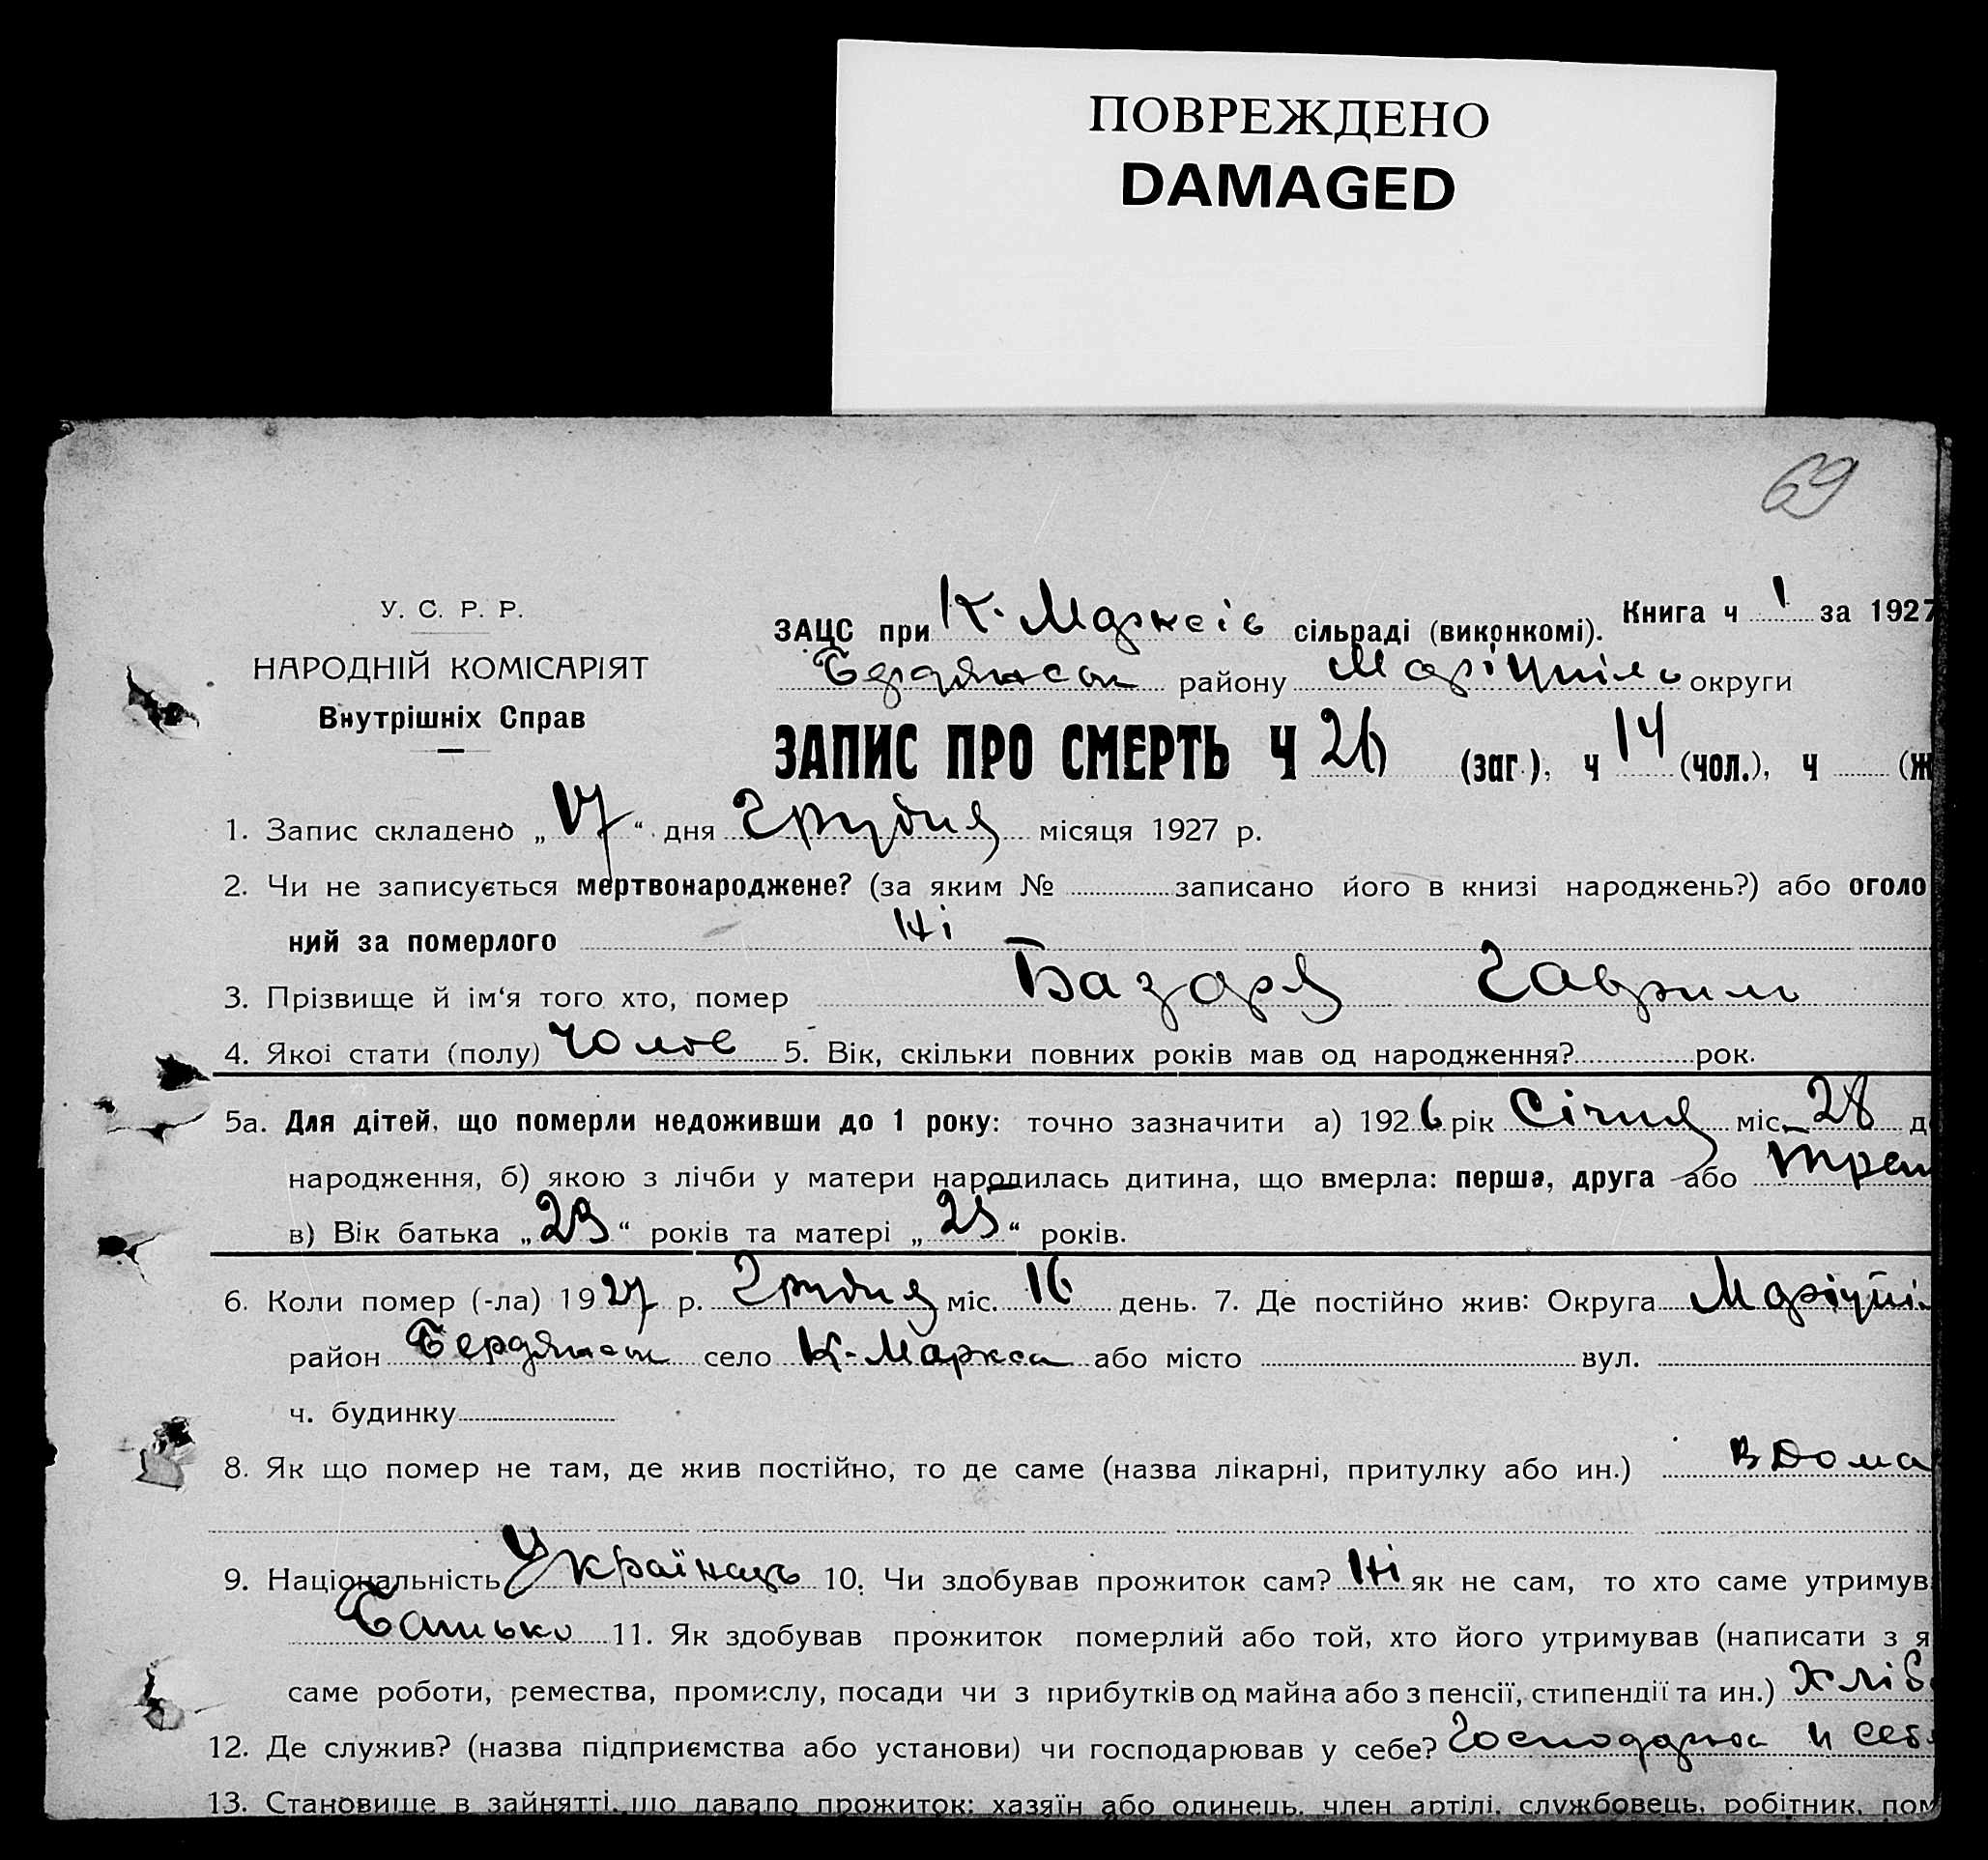 ПОВРЕЖДЕНО
DAMAGED
69
У. С. Р. Р.
НАРОДНІЙ КОМІСАРІЯТ
Внутрішніх Справ
Книга ч 1 за 1927
ЗАЦС при К. Марксів сільраді (виконкомі).
Бердянськ району Маріупіль округи
ЗАПИС ПРО СМЕРТЬ Ч 26 (заг.), ч 14 (чол.), ч (ж
1. Запис складено „17“ дня Грудня місяця 1927 р.
2. Чи не записується мертвонароджене? (за яким № записано його в книзі народжень?) або оголо
ний за померлого Ні
3. Прізвище й ім‘я того хто, помер Базаря Гаврило
4. Якої стати (полу) Чолов 5. Вік, скільки повних років мав од народження? рок.
5а. Для дітей, що померли недоживши до 1 року: точно зазначити а) 1926 рік Січня міс. 28 д
народження, б) якою з лічби у матери народилась дитина, що вмерла: перша, друга або трет
в) Вік батька „29“ років та матері „25“ років.
6. Коли помер (-ла) 1927 р. Грудня міс. 16 день. 7. Де постійно жив: Округа Маріупі
район Бердянськ село К-Маркса або місто вул.
ч. будинку
8. Як що помер не там, де жив постійно, то де саме (назва лікарні, притулку або ин.) В Дома
9. Національність Українець 10. Чи здобував прожиток сам? Ні як не сам, то хто саме утримув
Батько 11. Як здобував прожиток померлий або той, хто його утримував (написати з я
саме роботи, ремества, промислу, посади чи з прибутків од майна або з пенсії, стипендії та ин.) Хліб
12. Де служив? (назва підприємства або установи) чи господарював у себе? у себ
13. Становище в зайнятті, що давало прожиток: хазяїн або одинець, член артілі, службовець, робітник, пом